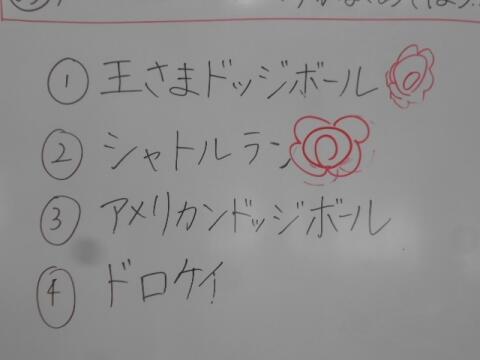 ① 王さまドッジボール
② シャトルラン
③ アメリカンドッジボール
④ ドロケイ